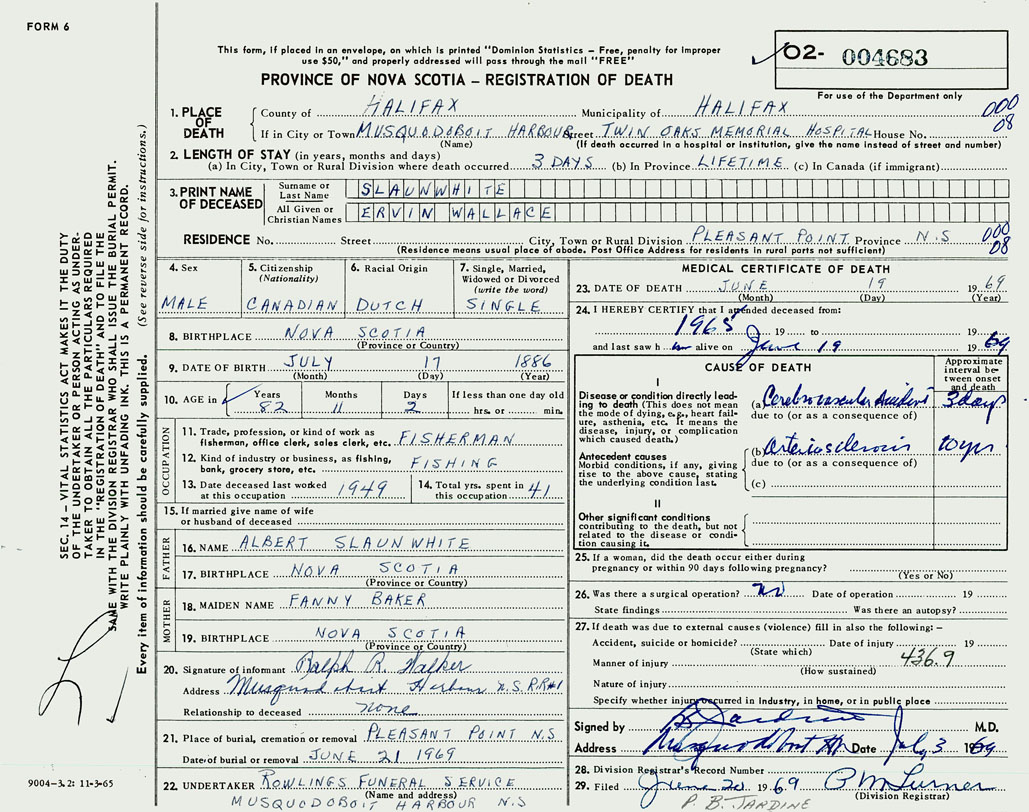 FORM 6
This form, if placed in an envelope, on which is printed "Dominion Statistics – Free, penalty for improper
use $50," and properly addressed will pass through the mail "FREE"
PROVINCE OF NOVA SCOTIA – REGISTRATION OF DEATH
O2- 004683
For use of the Department only
1. PLACE OF DEATH
County of HALIFAX Municipality of HALIFAX 000
If in City or Town MUSQUODOBOIT HARBOUR Street TWIN OAKS MEMORIAL HOSPITAL House No. 08
(Name) (If death occurred in a hospital or institution, give the name instead of street and number)
2. LENGTH OF STAY (in years, months and days)
(a) In City, Town or Rural Division where death occurred 3 DAYS (b) In Province LIFETIME (c) In Canada (if immigrant)
3. PRINT NAME OF DECEASED
Surname or Last Name SLAUNWHITE
All Given or Christian Names ERVIN WALLACE
RESIDENCE No. Street City, Town or Rural Division PLEASANT POINT Province N.S 000
(Residence means usual place of abode. Post Office Address for residents in rural parts not sufficient) 08
4. Sex
MALE
5. Citizenship
(Nationality)
CANADIAN
6. Racial Origin
DUTCH
7. Single, Married,
Widowed or Divorced
(write the word)
SINGLE
8. BIRTHPLACE NOVA SCOTIA
(Province or Country)
9. DATE OF BIRTH JULY 17 1886
(Month) (Day) (Year)
10. AGE in Years Months Days If less than one day old
82 11 2 hrs. or min.
OCCUPATION
11. Trade, profession, or kind of work as
fisherman, office clerk, sales clerk, etc. FISHERMAN
12. Kind of industry or business, as fishing,
bank, grocery store, etc. FISHING
13. Date deceased last worked
at this occupation 1949
14. Total yrs. spent in
this occupation 41
15. If married give name of wife
or husband of deceased
FATHER
16. NAME ALBERT SLAUNWHITE
17. BIRTHPLACE NOVA SCOTIA
(Province or Country)
MOTHER
18. MAIDEN NAME FANNY BAKER
19. BIRTHPLACE NOVA SCOTIA
(Province or Country)
20. Signature of informant Ralph R. Walker
Address Musquodoboit Harbour N.S. R.R#1
Relationship to deceased none
21. Place of burial, cremation or removal PLEASANT POINT N.S
Date of burial or removal JUNE 21 1969
22. UNDERTAKER ROWLINGS FUNERAL SERVICE
(Name and address)
MUSQUODOBOIT HARBOUR N.S
MEDICAL CERTIFICATE OF DEATH
23. DATE OF DEATH JUNE 19 1969
(Month) (Day) (Year)
24. I HEREBY CERTIFY that I attended deceased from:
1965 19 to 19
and last saw him alive on June 19 1969
CAUSE OF DEATH
Approximate
interval be-
tween onset
and death
I
Disease or condition directly lead-
ing to death (This does not mean
the mode of dying, e.g., heart fail-
ure, asthenia, etc. It means the
disease, injury, or complication
which caused death.)
(a) Cerebrovascular accident 3 days
due to (or as a consequence of)
Antecedent causes
Morbid conditions, if any, giving
rise to the above cause, stating
the underlying condition last.
(b) Arteriosclerosis 10 yrs
due to (or as a consequence of)
(c)
II
Other significant conditions
contributing to the death, but not
related to the disease or condi-
tion causing it.
25. If a woman, did the death occur either during
pregnancy or within 90 days following pregnancy?
(Yes or No)
26. Was there a surgical operation? no Date of operation 19
State findings Was there an autopsy?
27. If death was due to external causes (violence) fill in also the following: –
Accident, suicide or homicide? Date of injury 19
(State which)
Manner of injury 436.9
(How sustained)
Nature of injury
Specify whether injury occurred in Industry, in home, or in public place
Signed by Jardine M.D.
Address Musquodoboit Hbr Date July 3 1969
28. Division Registrar's Record Number
29. Filed June 20 1969
(Division Registrar)
P. B. JARDINE
SEC. 14 – VITAL STATISTICS ACT MAKES IT THE DUTY
OF THE UNDERTAKER OR PERSON ACTING AS UNDER-
TAKER TO OBTAIN ALL THE PARTICULARS REQUIRED
IN THE "REGISTRATION OF DEATH" AND TO FILE THE
SAME WITH THE DIVISION REGISTRAR WHO SHALL ISSUE THE BURIAL PERMIT.
WRITE PLAINLY WITH UNFADING INK. THIS IS A PERMANENT RECORD.
Every item of information should be carefully supplied. (See reverse side for instructions.)
9004-3.2: 11-3-65